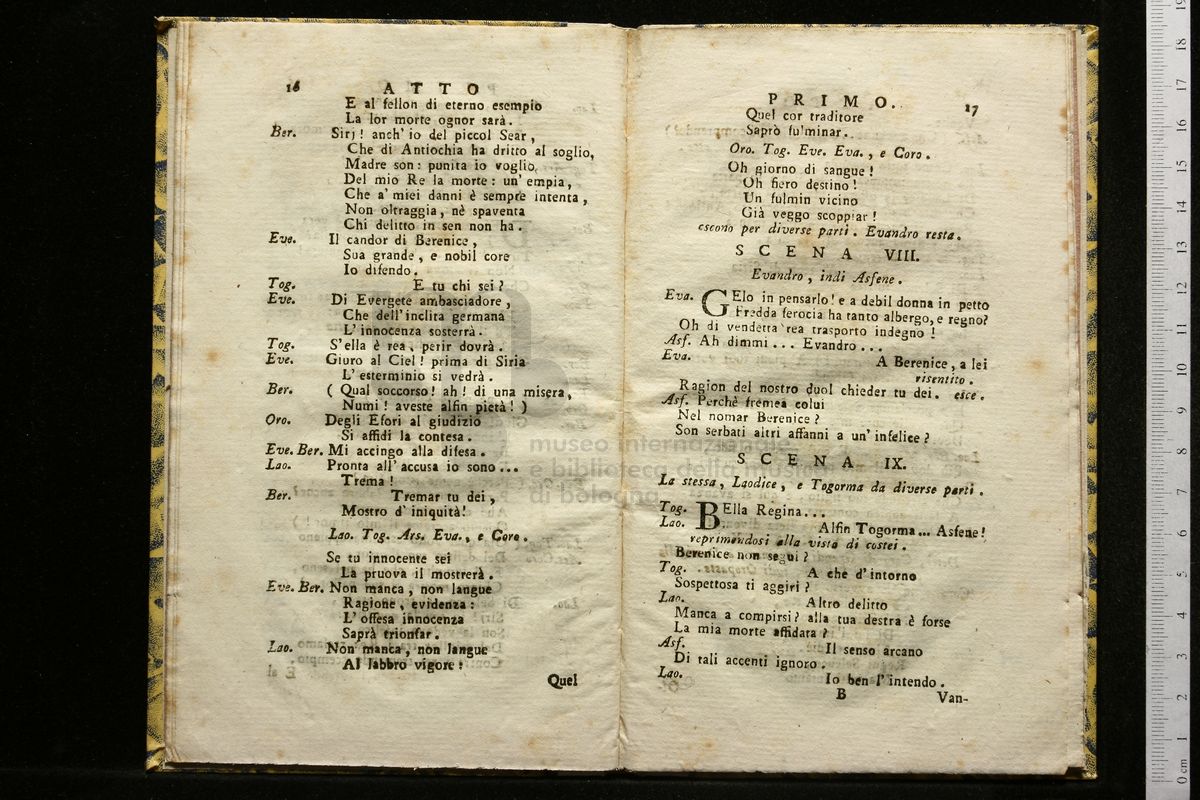 16 ATTO
E al fellon di eterno esempio
La lor morte ognor sarà.
Ber. Sirj! anch' io del piccol Sear,
Che di Antiochia ha dritto al soglio,
Madre son: punita io voglio
Del mio Re la morte: un' empia,
Che a' miei danni è sempre intenta,
Non oltraggia, nè spaventa
Chi delitto in sen non ha.
Eve. Il candor di Berenice,
Sua grande, e nobil core
Io difendo.
Tog. E tu chi sei?
Eve. Di Evergete ambasciadore,
Che dell' inclita germana
L' innocenza sosterrà.
Tog. S'ella è rea, perir dovrà.
Eve. Giuro al Ciel! prima di Siria
L' esterminio si vedrà.
Ber. ( Qual soccorso! ah! di una misera,
Numi! aveste alfin pietà! )
Oro. Degli Efori al giudizio
Si affidi la contesa.
Eve. Ber. Mi accingo alla difesa.
Lao. Pronta all' accusa io sono...
Trema!
Ber. Tremar tu dei,
Mostro d' iniquità!
Lao. Tog. Ars. Eva., e Coro.
Se tu innocente sei
La pruova il mostrerà.
Eve. Ber. Non manca, non langue
Ragione, evidenza:
L' offesa innocenza
Saprà trionfar.
Lao. Non manca, non langue
Al labbro vigore:
Quel
PRIMO. 17
Quel cor traditore
Saprò fulminar.
Oro. Tog. Eve. Eva., e Coro.
Oh giorno di sangue!
Oh fiero destino!
Un fulmin vicino
Già veggo scoppiar!
escono per diverse parti. Evandro resta.
SCENA VIII.
Evandro, indi Asfene.
Eva. GElo in pensarlo! e a debil donna in petto
Fredda ferocia ha tanto albergo, e regno?
Oh di vendetta rea trasporto indegno!
Asf. Ah dimmi... Evandro...
Eva. A Berenice, a lei
risentito.
Ragion del nostro duol chieder tu dei. esce.
Asf. Perchè fremea colui
Nel nomar Berenice?
Son serbati altri affanni a un' infelice?
SCENA IX.
La stessa, Laodice, e Togorma da diverse parti.
Tog. BElla Regina...
Lao. Alfin Togorma... Asfene!
reprimendosi alla vista di costei.
Berenice non segui?
Tog. A che d'intorno
Sospettosa ti aggiri?
Lao. Altro delitto
Manca a compirsi? alla tua destra è forse
La mia morte affidata?
Asf. Il senso arcano
Di tali accenti ignoro.
Lao. Io ben l'intendo.
B Van-
museo internazionale
e biblioteca della musica
di bologna